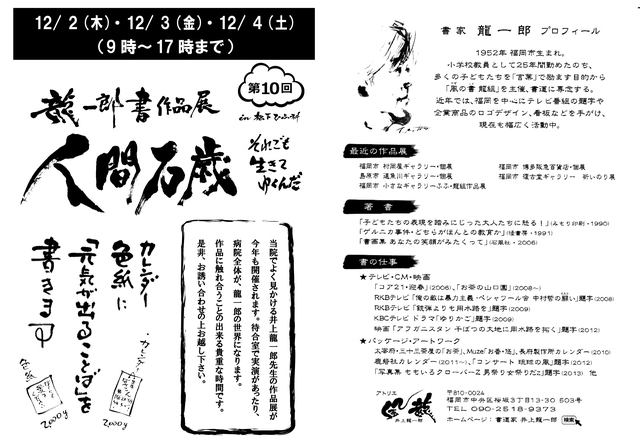 12/2(木)・12/3(金)・12/4(土)
(9時～17時まで)
第10回
龍一郎書作品展
in 松下ひふ科
人間万歳
それでも
生きて
ゆくんだ
カレンダー
色紙に
「元気が出ることば」を
書きます
・カレンダー
2000円
色紙
2000円
当院でよく見かける井上龍一郎先生の作品展が
今年も開催されます。待合室で実演があったり、
病院全体が、龍一郎の世界になります。
作品に触れ合うことの出来る貴重な時間です。
是非、お誘い合わせの上お越し下さい。
書家 龍一郎 プロフィール
1952年 福岡市生まれ。
小学校教員として25年間勤めたのち、
多くの子どもたちを「言葉」で励ます目的から
「凧の書 龍組」を主催、書道に専念する。
近年では、福岡を中心にテレビ番組の題字や
企業商品のロゴデザイン、看板などを手がけ、
現在も幅広く活動中。
最近の作品展
福岡市 村岡屋ギャラリー・個展
福岡市 博多阪急百貨店・個展
島原市 速魚川ギャラリー・個展
福岡市 復古堂ギャラリー 祈いのり展
福岡市 小さなギャラリーふふ・龍組作品展
著書
「子どもたちの表現を踏みにじった大人たちに怒る!」(みもり印刷・1990)
「ゲルニカ事件・どちらがほんとの教育か」(径書房・1991)
「書画集 あなたの笑顔がみたくって」(昭風社・2006)
書の仕事
★テレビ・CM・映画
「コア21・迎春」(2006)、「お茶の山口園」(2008～)
RKBテレビ「俺の敵は暴力主義・ペシャワール会 中村哲の願い」題字(2008)
RKBテレビ「銃弾よりも用水路を」題字(2009)
KBCテレビ ドラマ「ゆりかご」題字(2009)
映画「アフガニスタン 干ばつの大地に用水路を拓く」題字(2012)
★パッケージ・アートワーク
太宰府・三十三茶屋の「お茶」、Muze「お香・活」、長府製作所カレンダー(2010)
鹿島社カレンダー(2011～)、「コンサート 琉球の風」題字(2012)
「写真集 ももいろクローバーZ 男祭り女祭りだZ」題字(2013) 他
アトリエ
龍
井上龍一郎
〒810-0024
福岡市中央区桜坂3丁目13-30 603号
TEL 090-2518-9373
ホームページ:書道家 井上龍一郎 検索